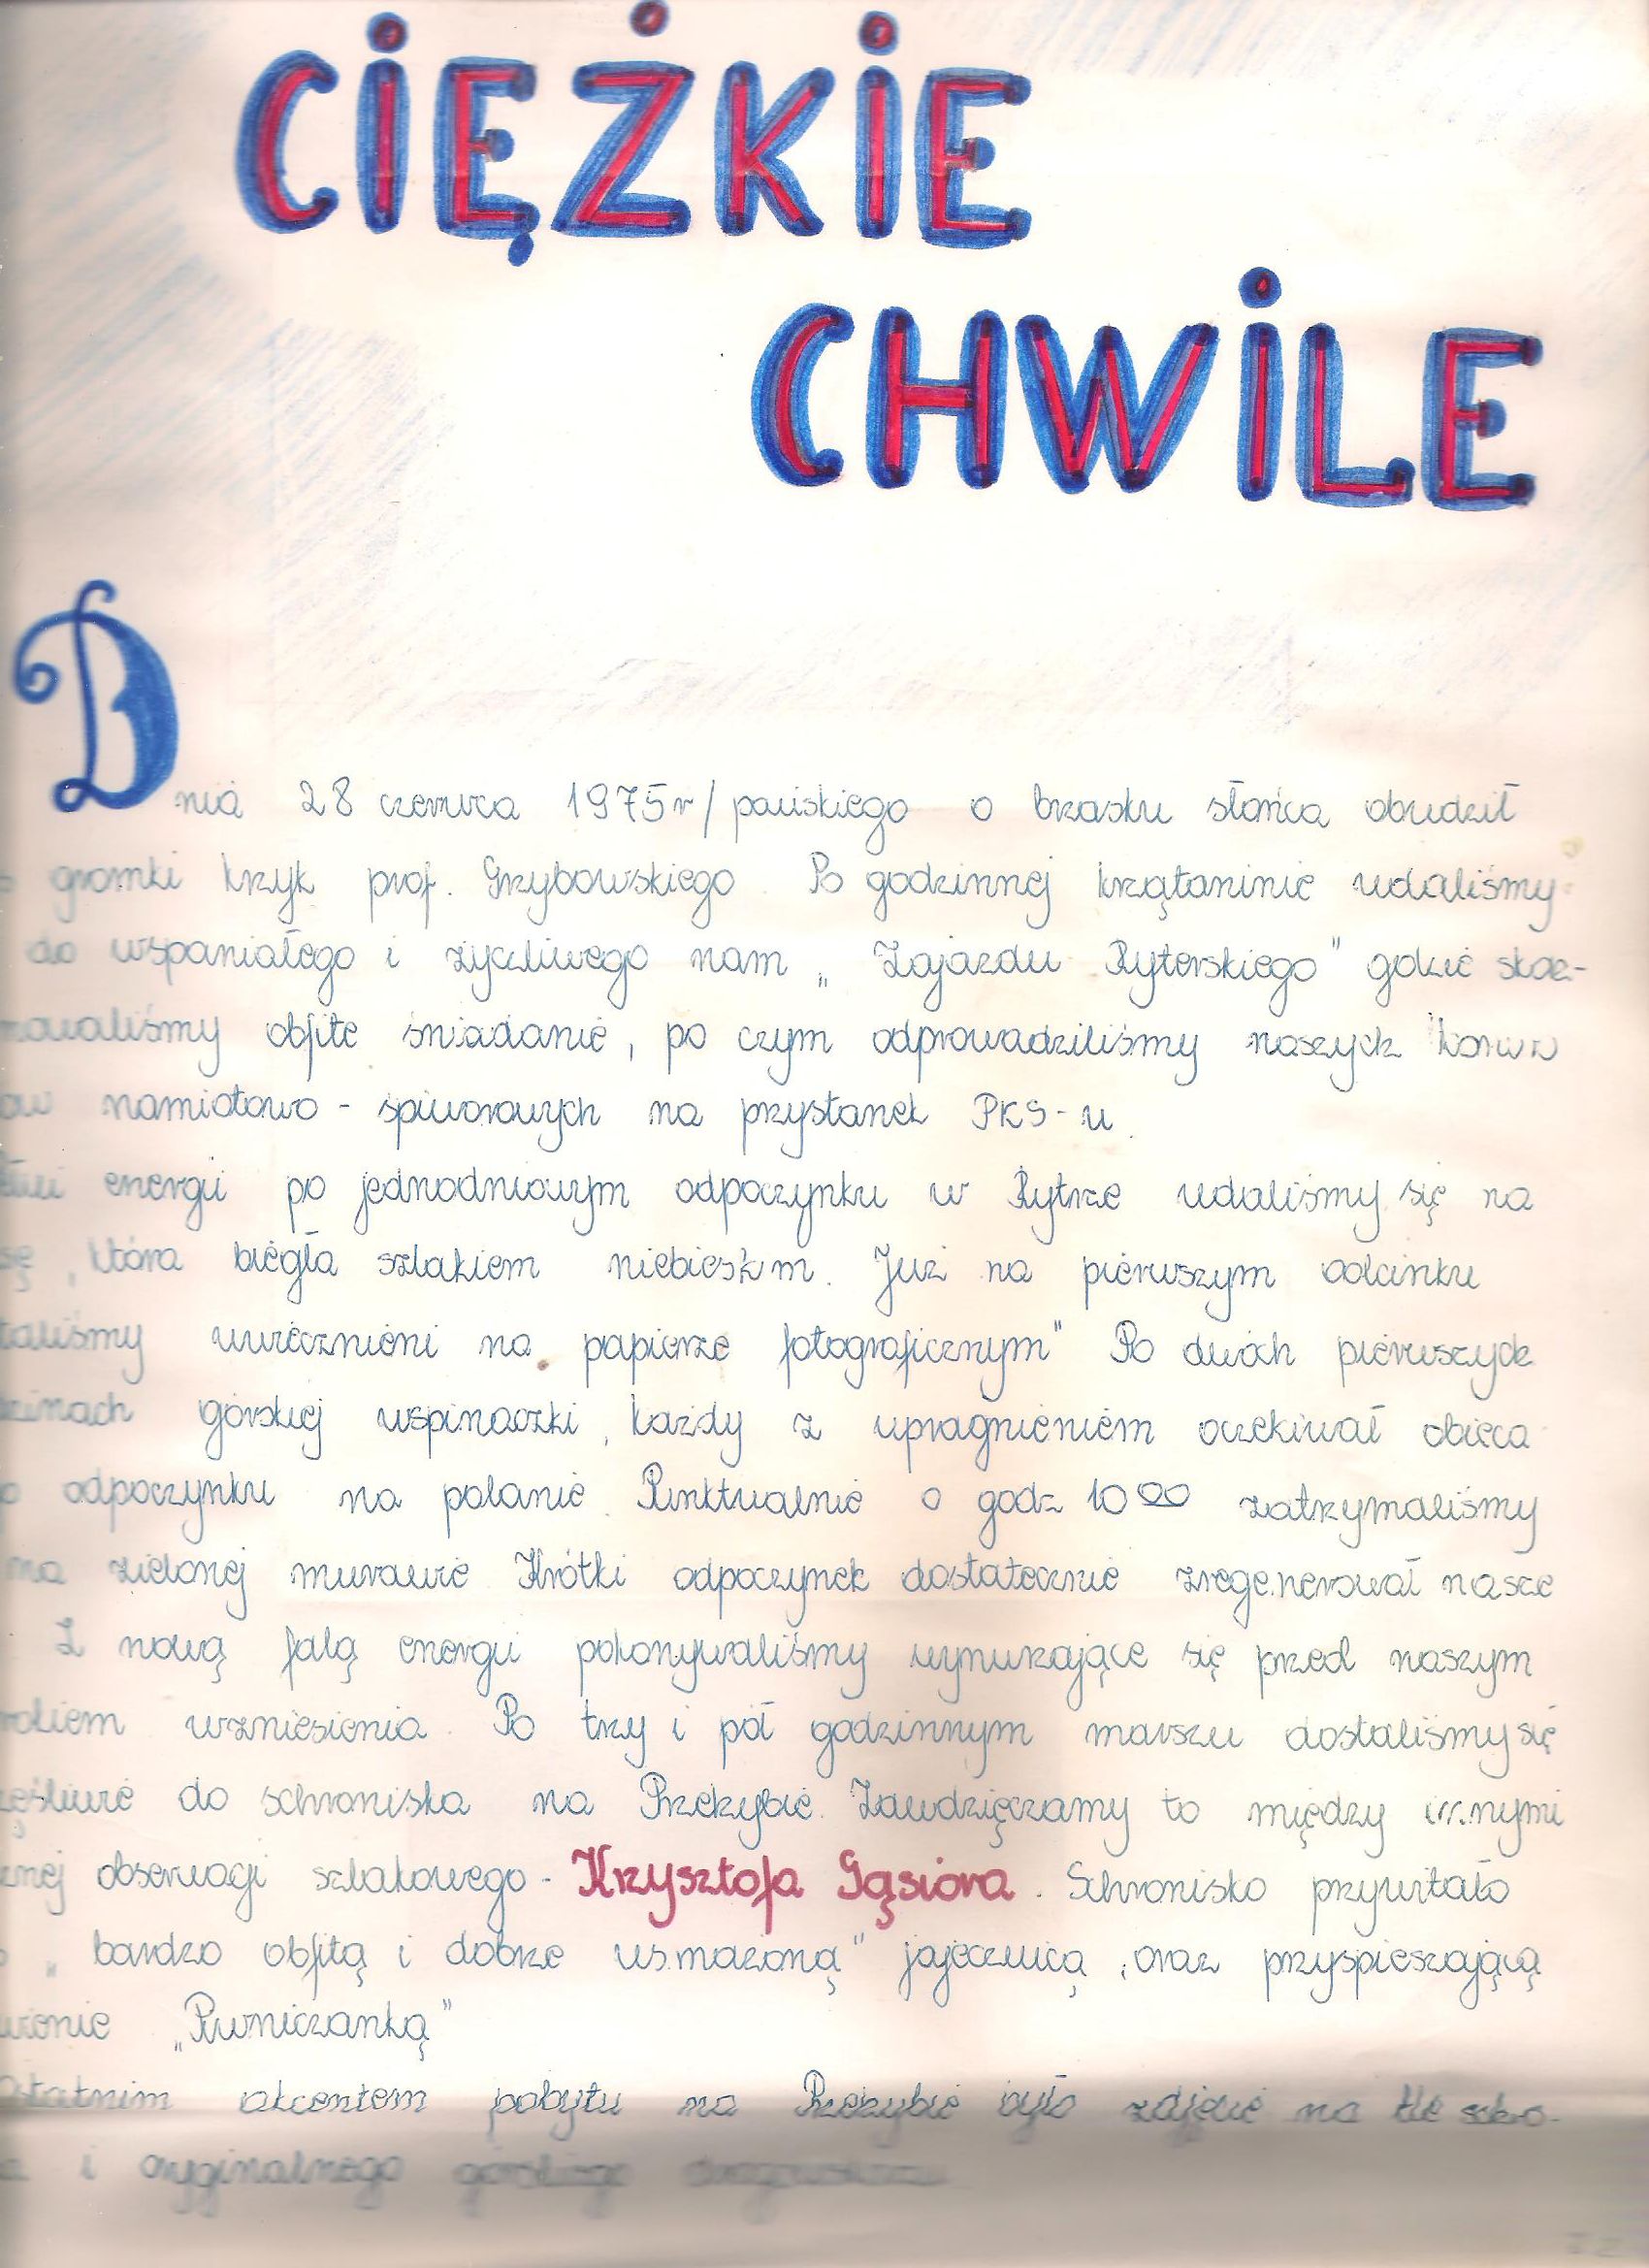 CIĘŻKIE
CHWILE
Dnia 28 czerwca 1975r/pańskiego o brzasku słońca obudził
gromki krzyk prof. Grzybowskiego. Po godzinnej krzątaninie udaliśmy
do wspaniałego i życzliwego nam „Zajazdu Ryterskiego" gdzie
obfite śniadanie, po czym odprowadziliśmy naszych
namiotowo - śpiworowych na przystanek PKS-u.
energii po jednodniowym odpoczynku w Rytrze udaliśmy się na
, która biegła szlakiem niebieskim. Już na pierwszym odcinku
taliśmy uwiecznieni na papierze fotograficznym" Po dwóch pierwszych
zinach górskiej wspinaczki, każdy z upragnieniem oczekiwał obieca
odpoczynku na polanie. Punktualnie o godz 10 00 zatrzymaliśmy
na zielonej murawie Krótki odpoczynek dostatecznie zregenerował nasze
Z nową falą energii pokonywaliśmy wynurzające się przed naszym
wzniesienia. Po trzy i pół godzinnym marszu dostaliśmy się
do schroniska na Przehybie. Zawdzięczamy to między innymi
znej obserwacji szlakowego - Krzysztofa Gąsiora. Schronisko przywitało
„bardzo obfitą i dobrze usmażoną" jajecznicą, oraz przyspieszającą
„Piwniczanką"
Ostatnim akcentem pobytu na Przehybie było zdjęcie na tle
i oryginalnego górskiego